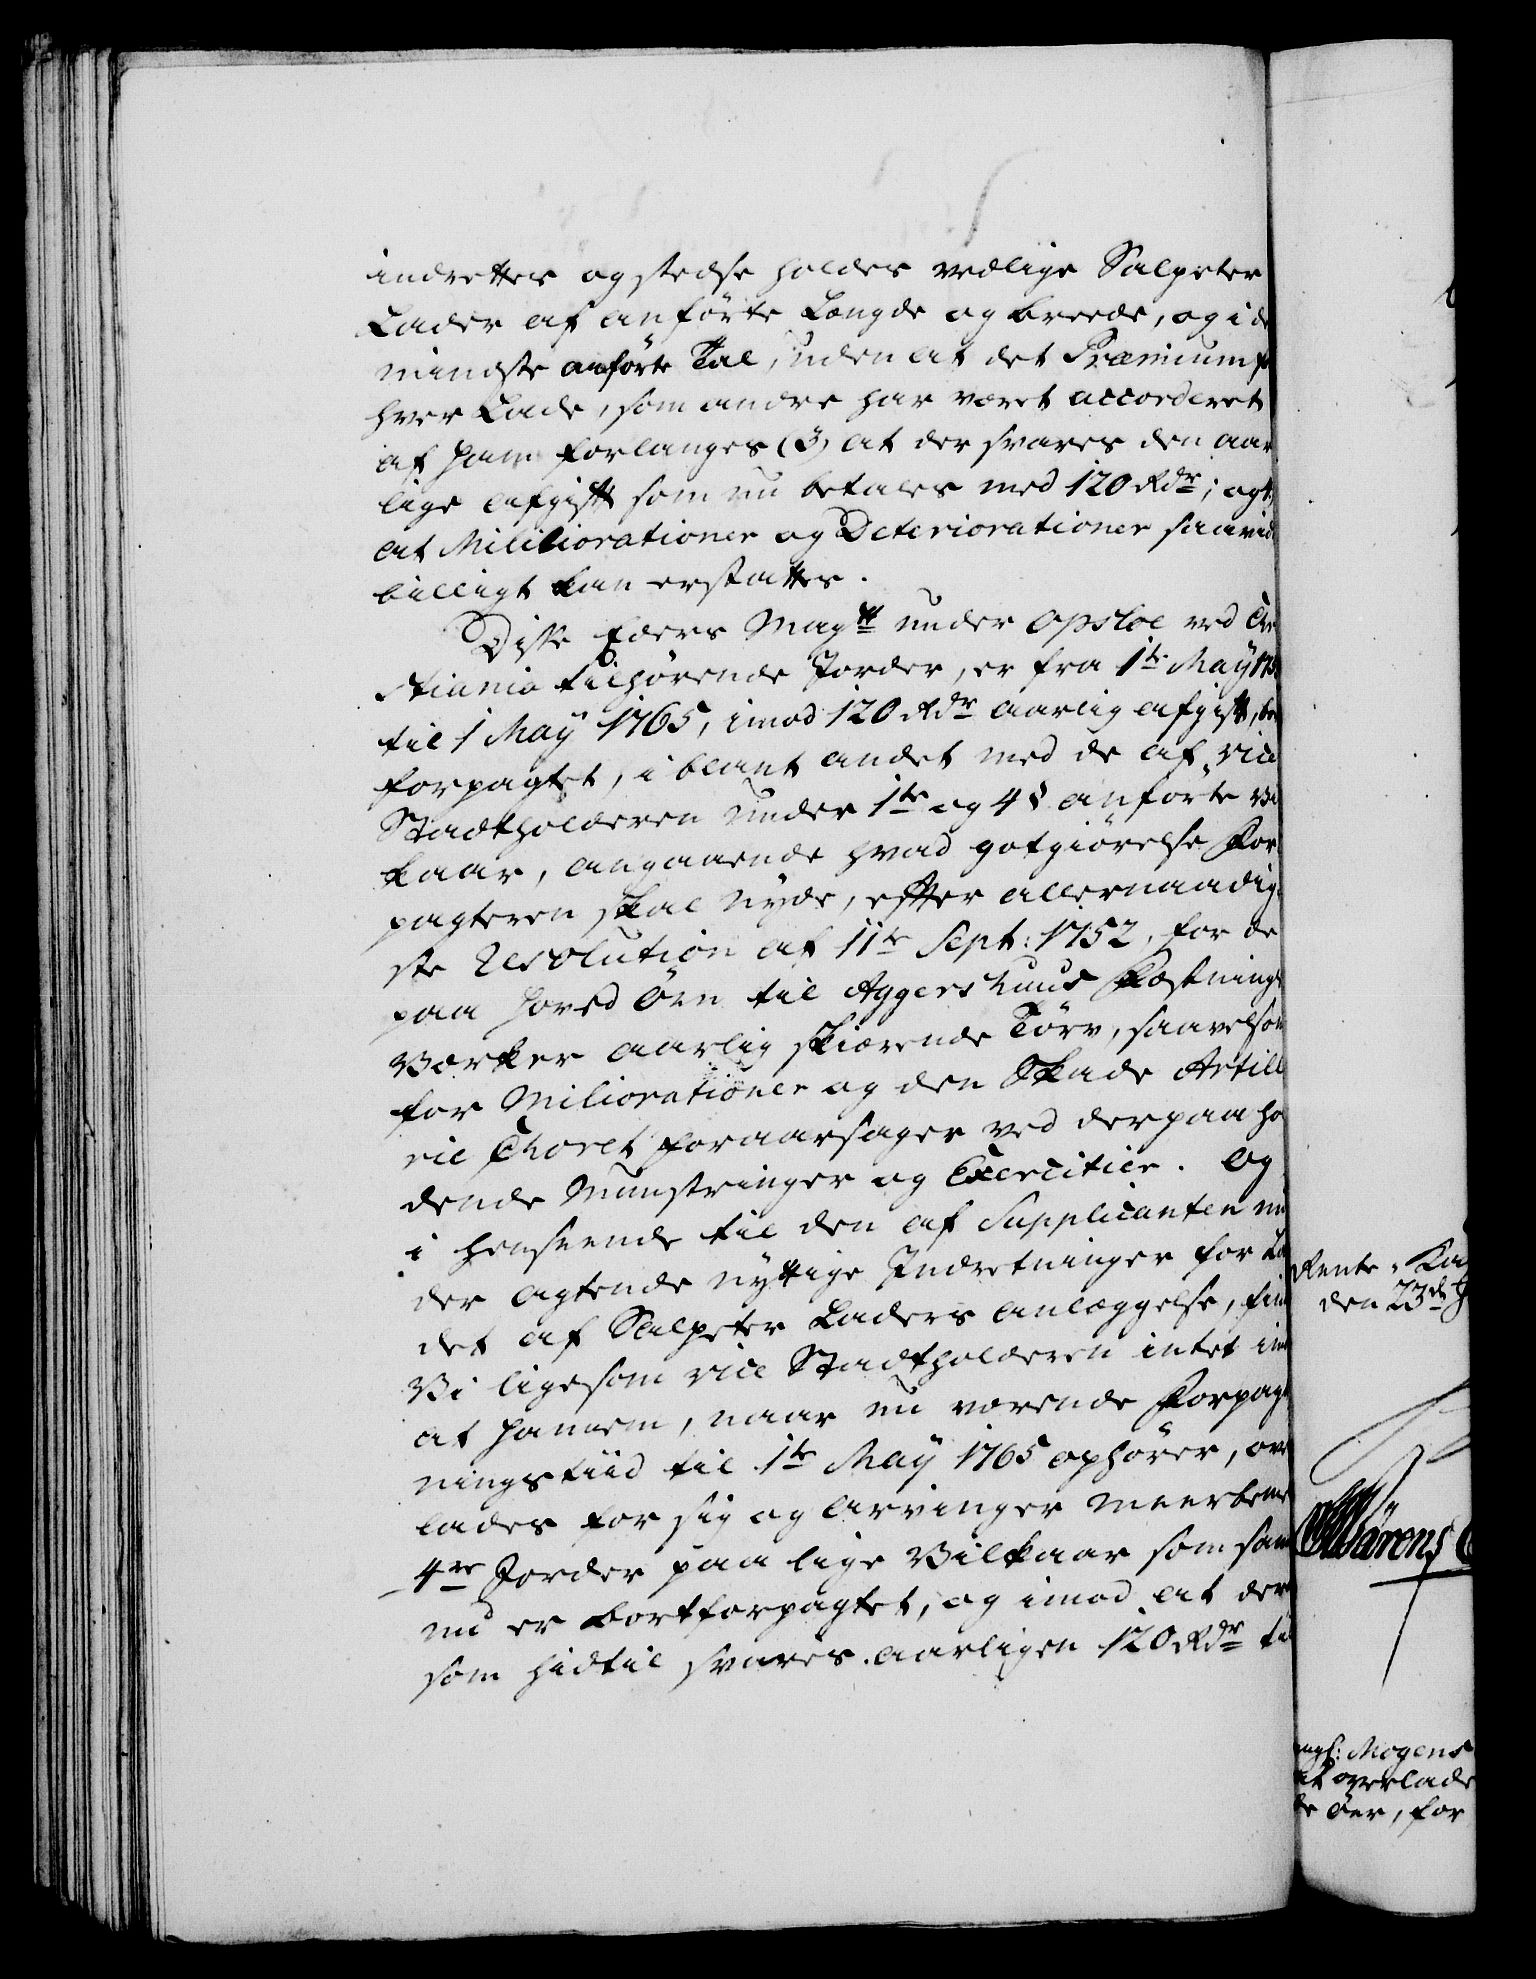 indrettes og stedse holdes vedlige Salpeter
Lader af anførte Længde og breede, og i de
mindste anførte Tal, uden at det Præmium f
hver Lade, som andre har været accorderet
af ham forlanges (3) at der svares den aar
lige afgift som nu betales med 120 Rdr; og 4
at Mililiorationer og Deteriorationer saavid
billigt kan erstattes.
Disse Eders Mayts under Opsloe ved Chr
stiania tilhørende Jorder, er fra 1te Maÿ 175
til 1 Maÿ 1765, imod 120 Rdr aarlig afgift, bort
forpagtet, i blant andet med de af vice
Stadtholderen under 1te og 4§ anførte Vil
kaar, angaaende hvad gotgiørelse For
pagteren skal nyde, efter allernaadig
ste Resolution af 11te Sept: 1752, for de
paa Hoved Øen til Aggershuus Fæstnings
Værker aarlig skiærende Tørv, saavelsom
for Miliorationer og den Skade Artille
rie Choret foraarsager ved derpaa ho
dende Munstringer og Exercitier. Og
i henseende til den af Supplicanten un
der agtende nyttige Indretninger for Lan
det af Salpeter Laders anlæggelse, find
Vi ligesom vice Stadtholderen intet imod
at hannem, naar nu værende Forpagt
ningstiid til 1te Maÿ 1765 ophører, over
lades for sig og Arvinger meerbemelt
4re Jorder paa lige Vilkaar som sam
nu er bortforpagtet, og imod at der
som hidtil svares aarligen 120 Rdr til
Rente-Ka
den 23de J
Wärens
ngl: Mogens
at overlade
de Øer, for